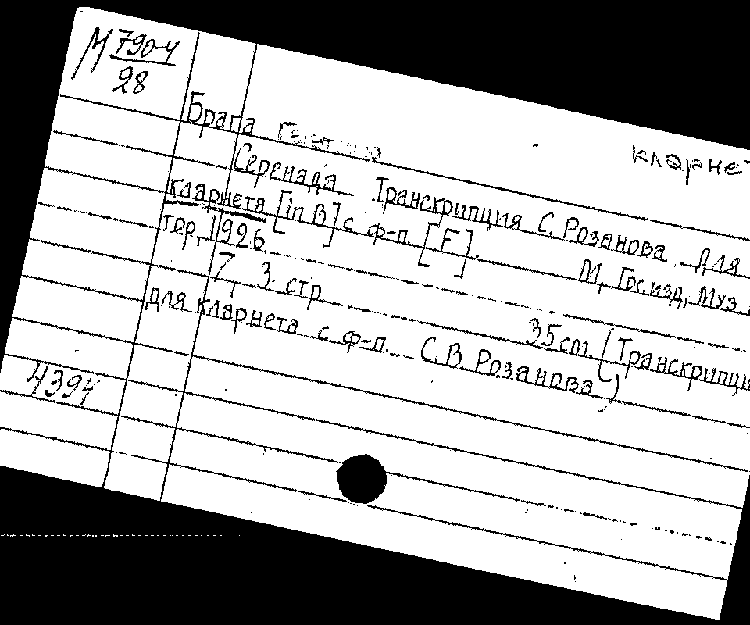 М 790-4
28
кларне
Брага
Серенада. Транскрипция С. Розанова. Для
кларнета [in B] с ф-п. [F]. М, Гос. изд, Муз.
1926
7, 3 стр 35 cm. (Транскрипци
для кларнета с ф-п. С.В. Розанова)
4394